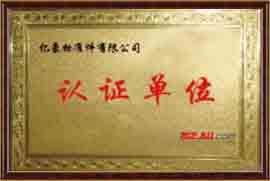 亿豪标准件有限公司
认证单位